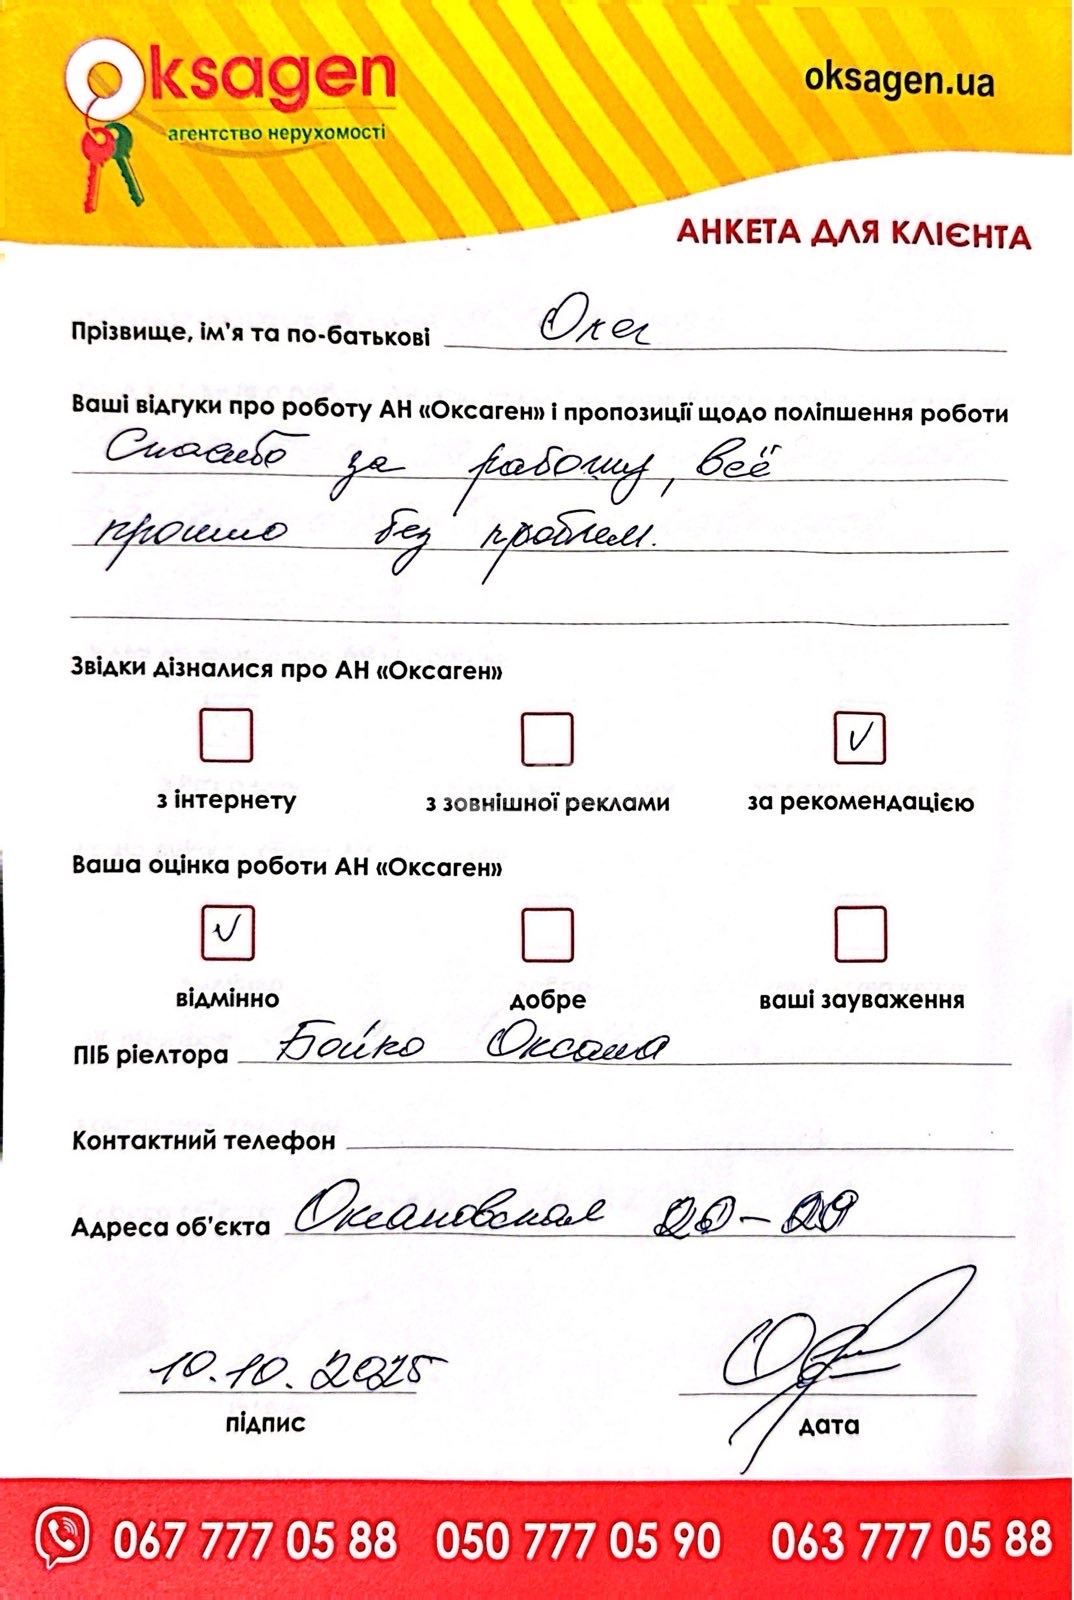 Oksagen
агентство нерухомості
oksagen.ua
АНКЕТА ДЛЯ КЛІЄНТА
Прізвище, ім'я та по-батькові Олег
Ваші відгуки про роботу АН «Оксаген» і пропозиції щодо поліпшення роботи
Спасибо за работу, всё
прошло без проблем.
Звідки дізналися про АН «Оксаген»
з інтернету з зовнішної реклами за рекомендацією
Ваша оцінка роботи АН «Оксаген»
відмінно добре ваші зауваження
ПІБ ріелтора Бойко Оксана
Контактний телефон
Адреса об'єкта
10.10.2025
підпис дата
067 777 05 88 050 777 05 90 063 777 05 88